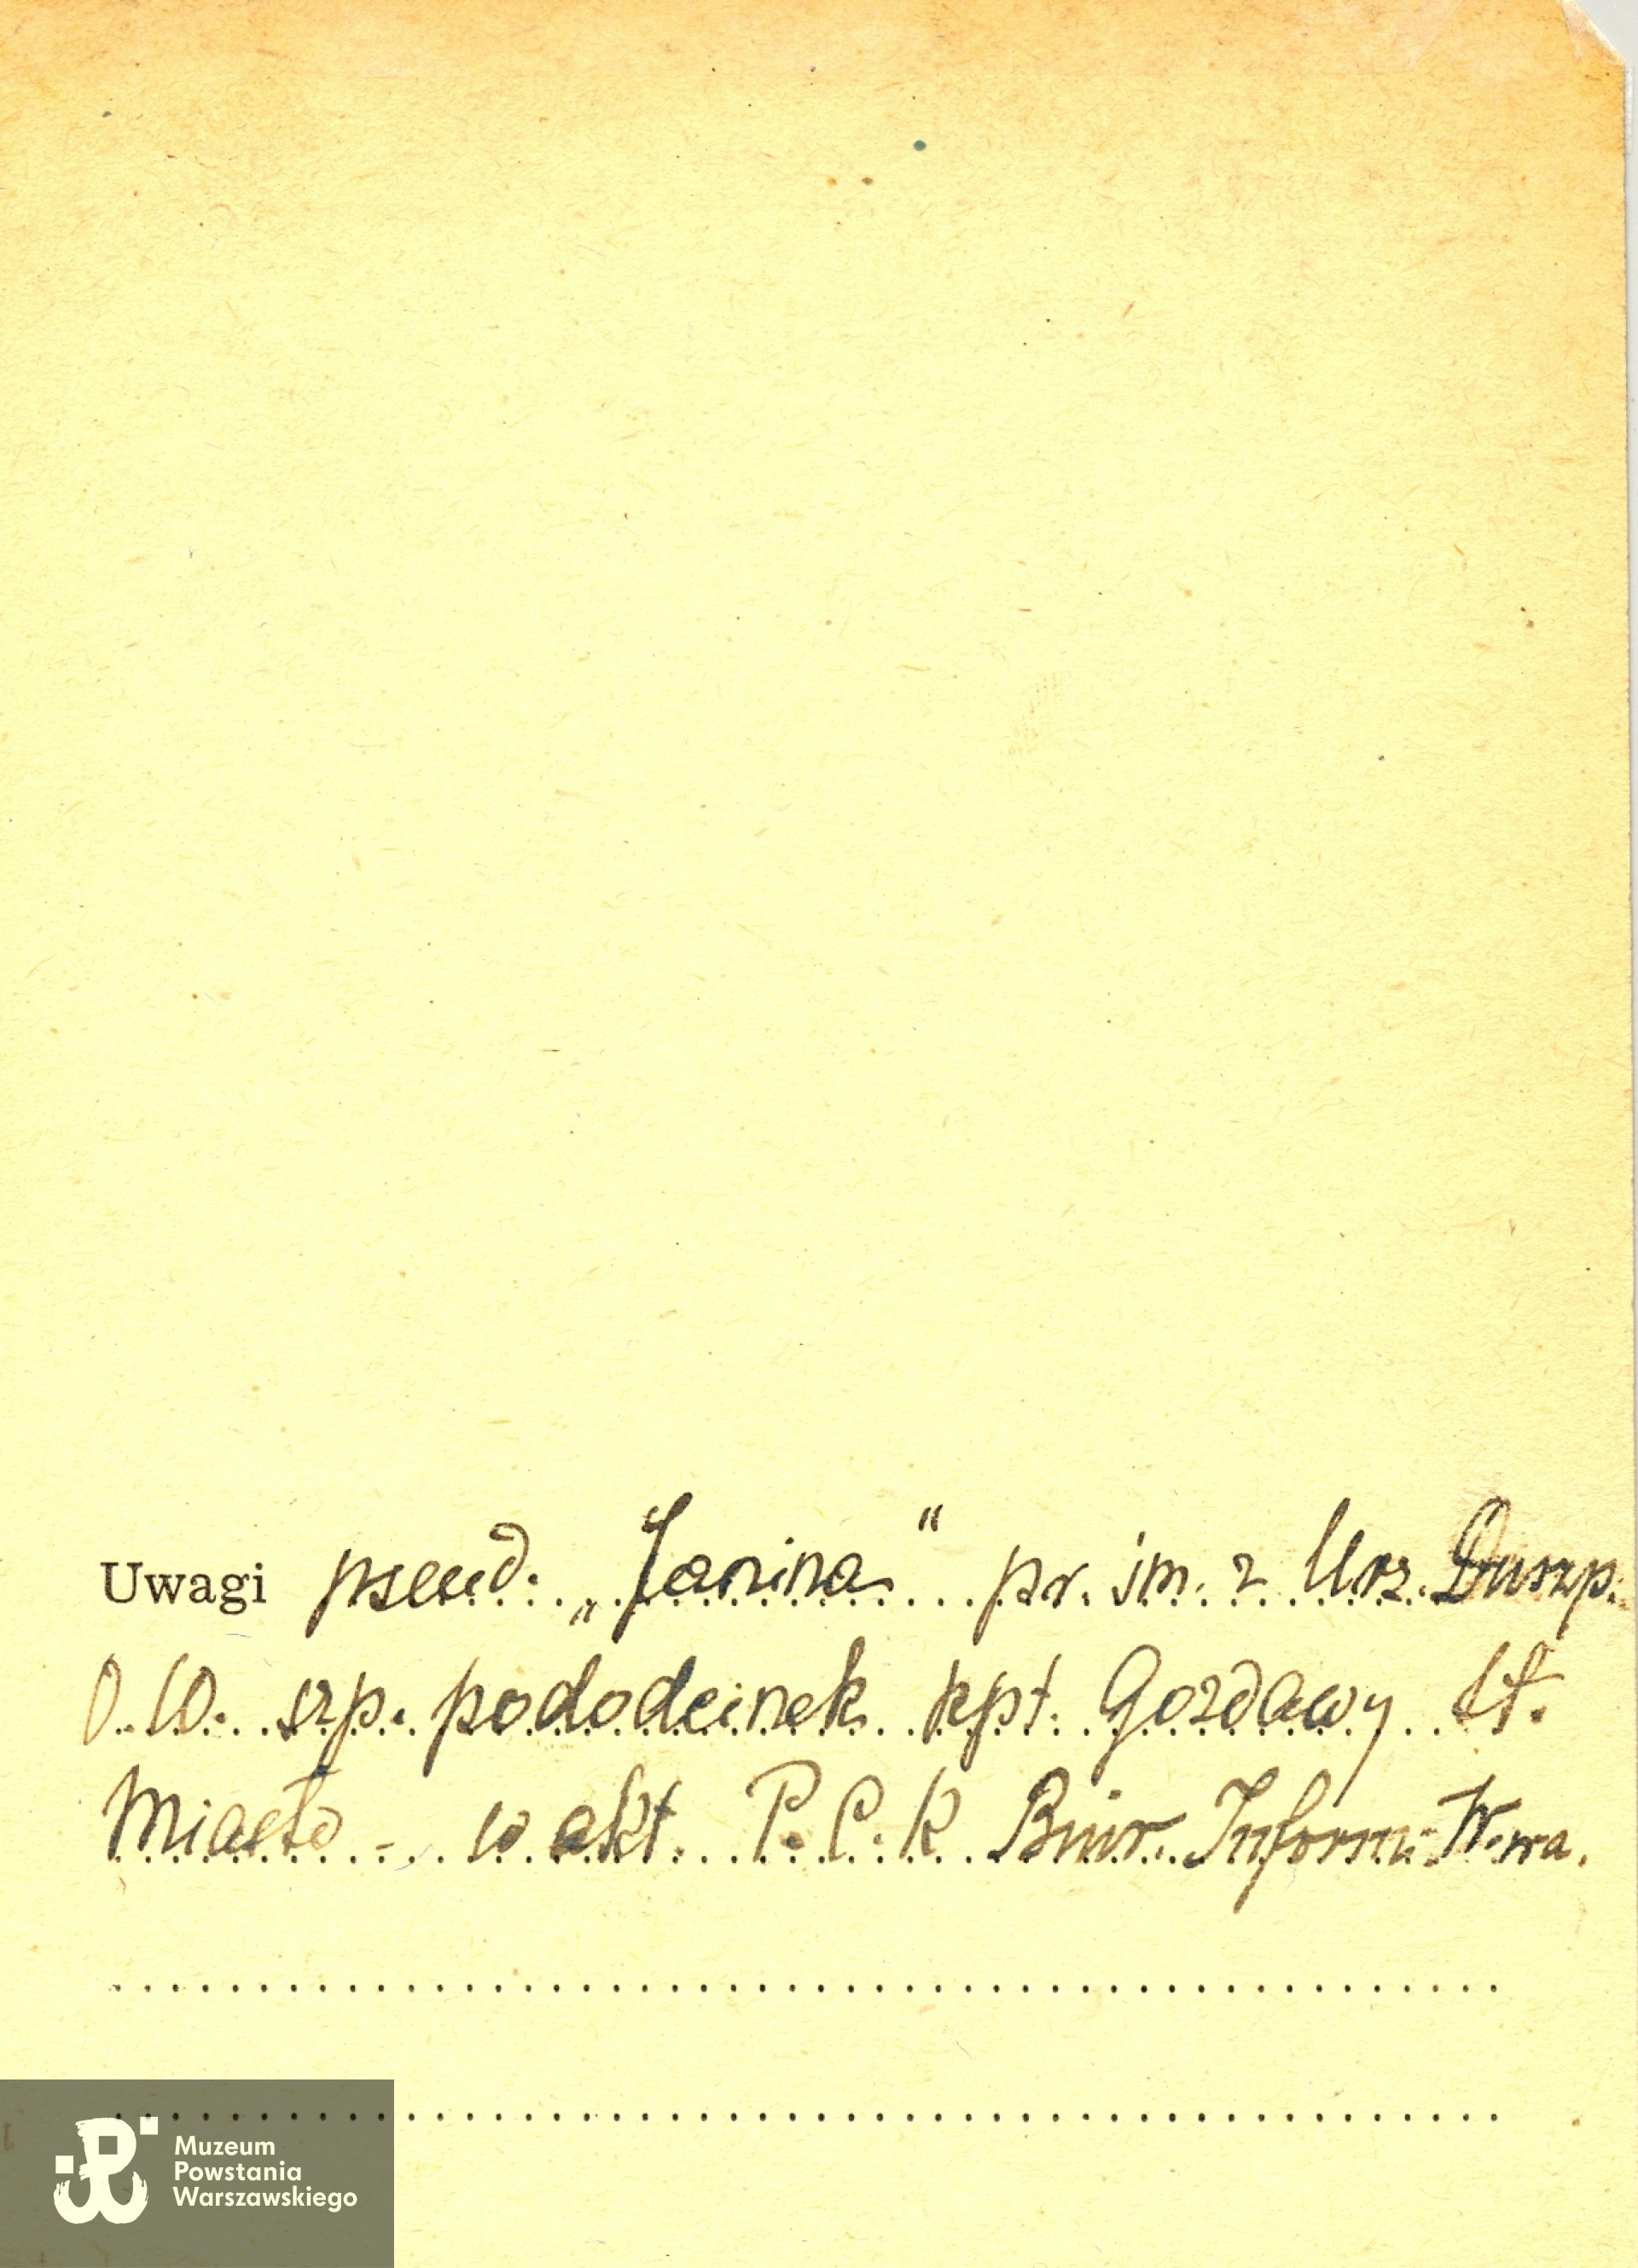 Uwagi pseud. „Janina“ pr. im. z Urz. Duszp.
O.W. szp. pododcinek kpt. Gozdawy St.
Miasto - w akt. P.C.K Biur. Inform. W-wa.
Muzeum
Powstania
Warszawskiego